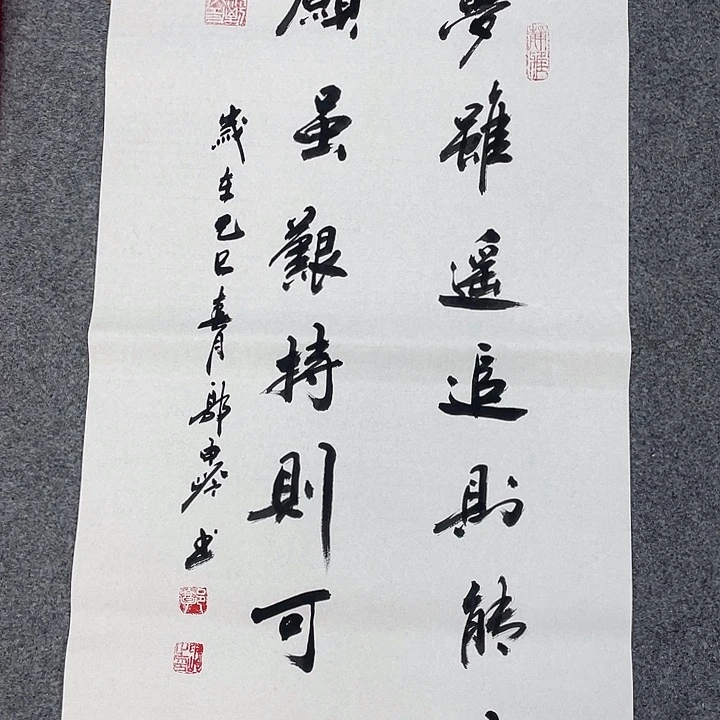 夢雖遥追則能
願虽艱持則可
歲在乙巳春月郭書